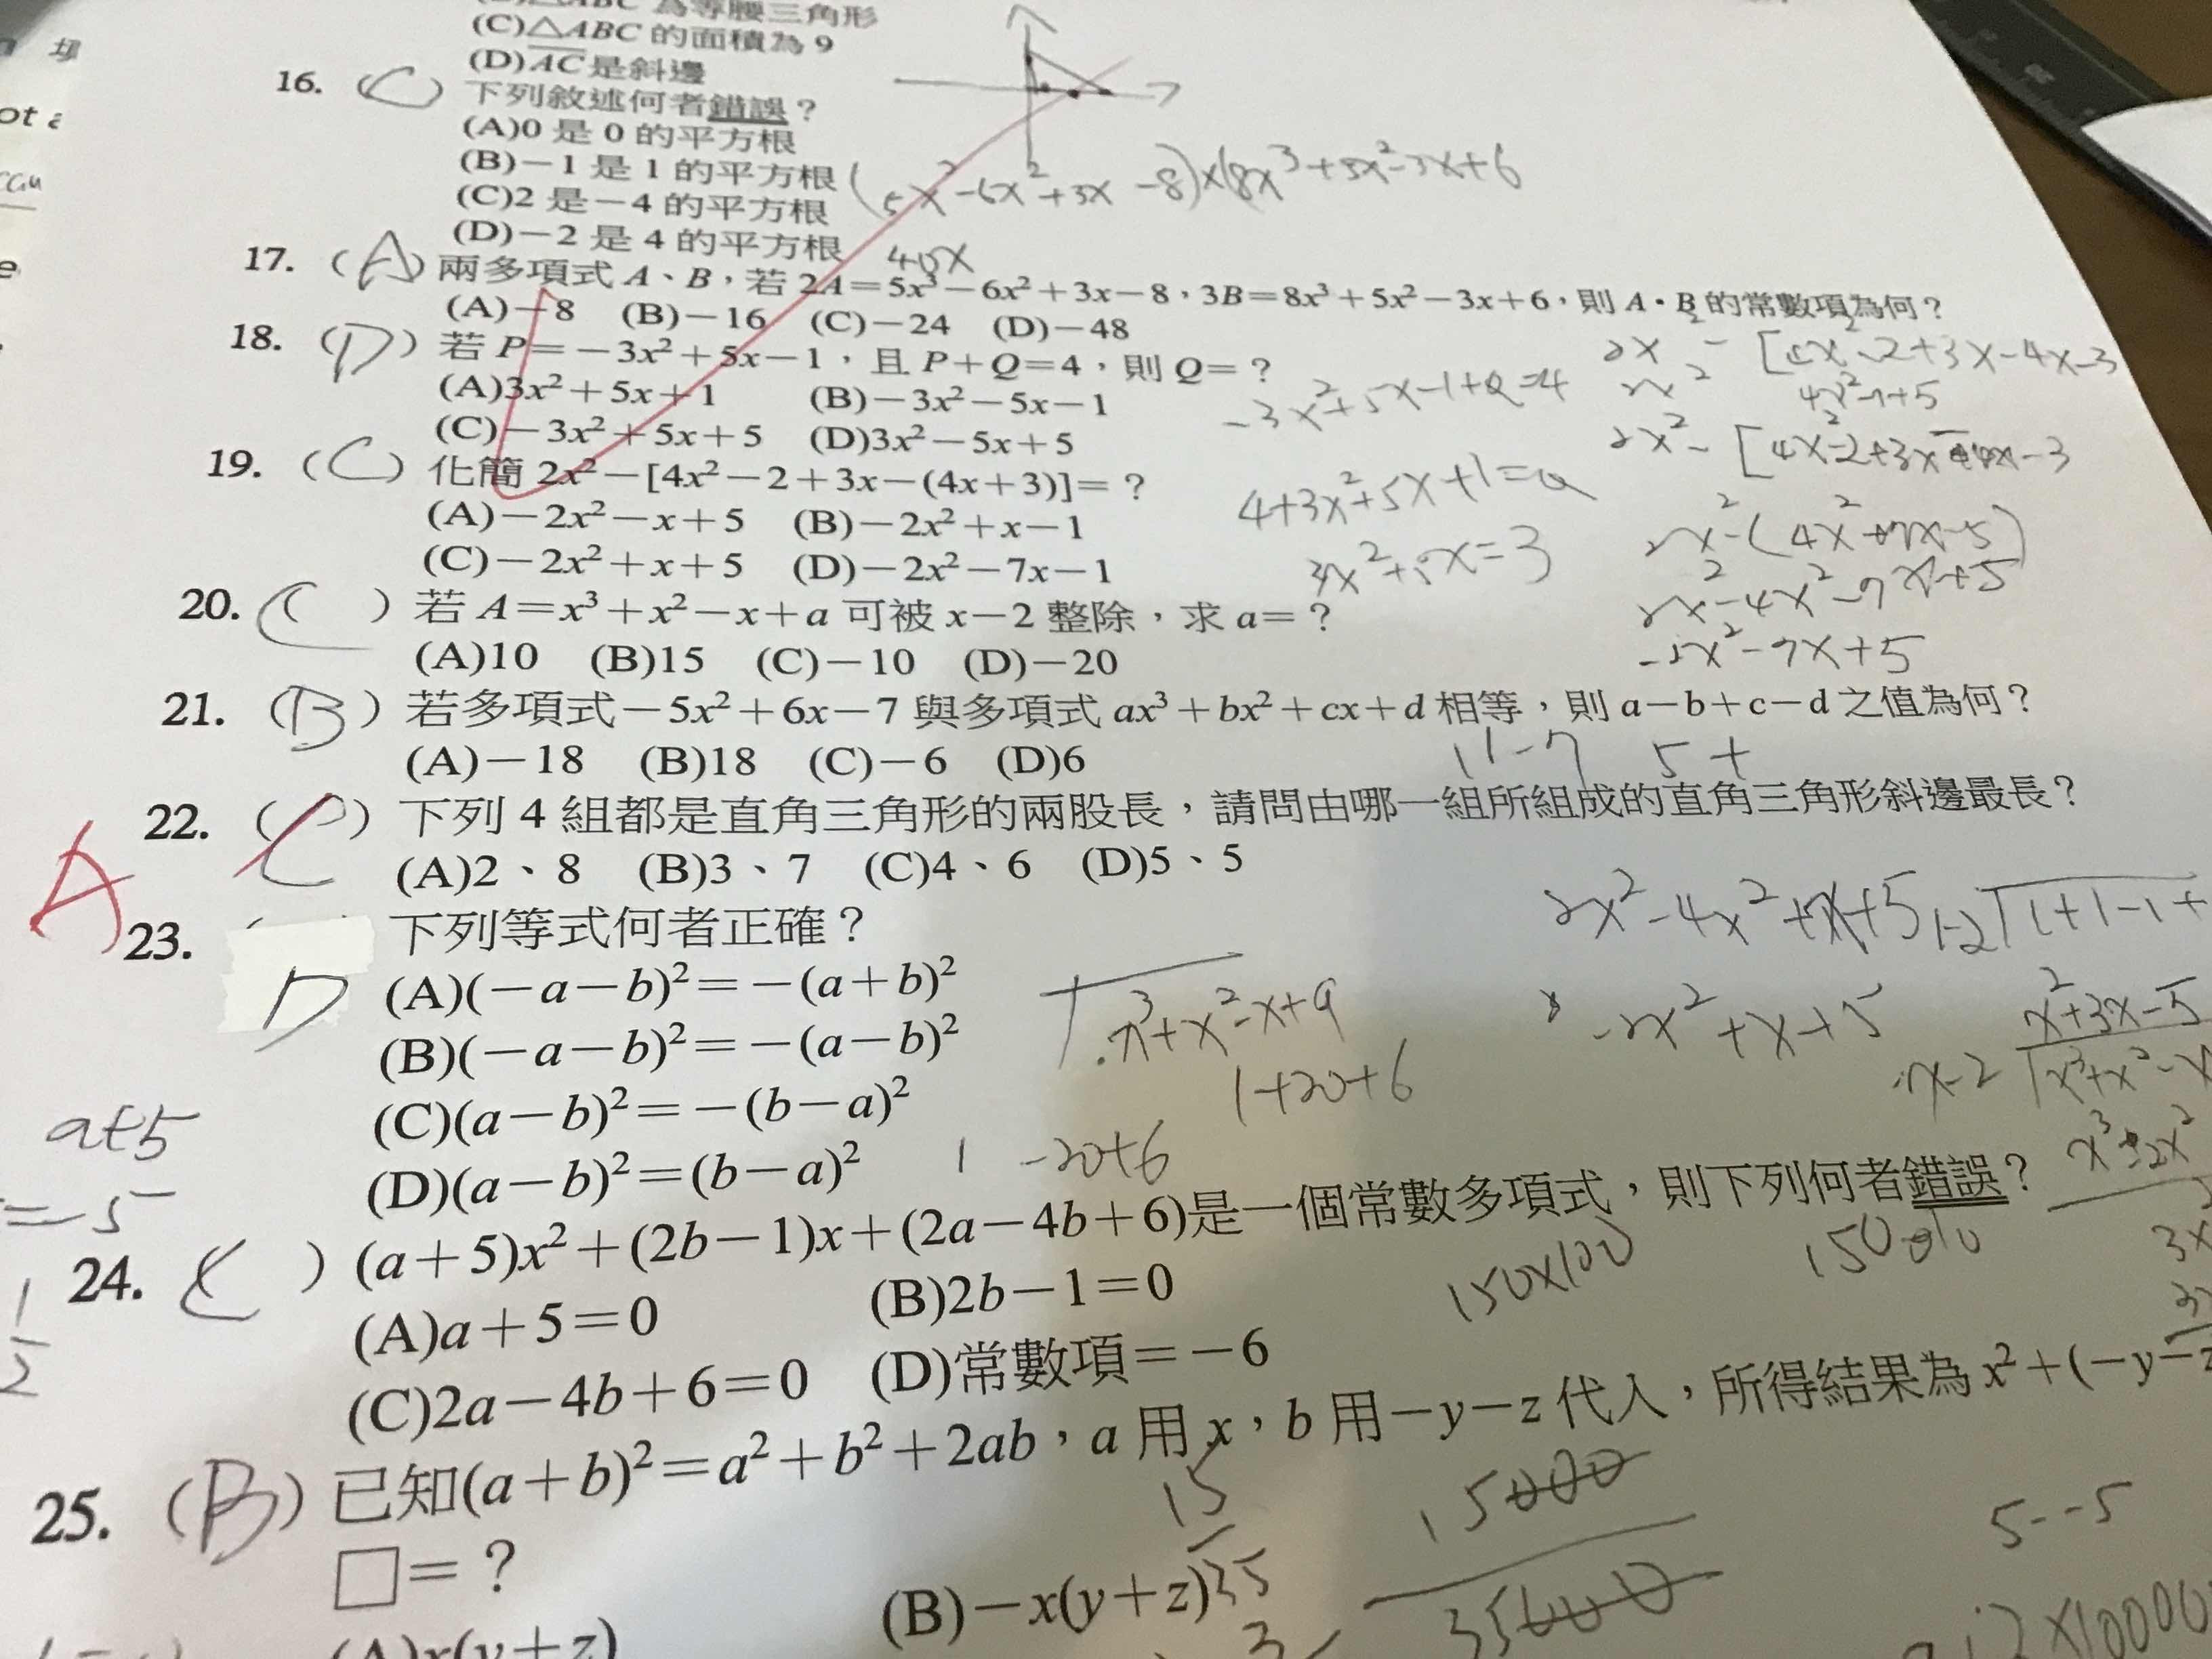 (C)△ABC 的面積為 9
(D)AC 是斜邊
16. (C) 下列敘述何者錯誤？
(A)0 是 0 的平方根
(B)−1 是 1 的平方根
(C)2 是−4 的平方根
(D)−2 是 4 的平方根
17. (A) 兩多項式 A、B，若 2A＝5x³−6x²+3x−8，3B＝8x³+5x²−3x+6，則 A·B 的常數項為何？
(A)−8 (B)−16 (C)−24 (D)−48
18. (D) 若 P＝−3x²+5x−1，且 P+Q＝4，則 Q＝？
(A)3x²+5x+1 (B)−3x²−5x−1
(C)−3x²+5x+5 (D)3x²−5x+5
19. (C) 化簡 2x²−[4x²−2+3x−(4x+3)]＝？
(A)−2x²−x+5 (B)−2x²+x−1
(C)−2x²+x+5 (D)−2x²−7x−1
20. (C) 若 A＝x³+x²−x+a 可被 x−2 整除，求 a＝？
(A)10 (B)15 (C)−10 (D)−20
21. (B) 若多項式−5x²+6x−7 與多項式 ax³+bx²+cx+d 相等，則 a−b+c−d 之值為何？
(A)−18 (B)18 (C)−6 (D)6
A 22. (C) 下列 4 組都是直角三角形的兩股長，請問由哪一組所組成的直角三角形斜邊最長？
(A)2、8 (B)3、7 (C)4、6 (D)5、5
23. D 下列等式何者正確？
(A)(−a−b)²＝−(a+b)²
(B)(−a−b)²＝−(a−b)²
(C)(a−b)²＝−(b−a)²
(D)(a−b)²＝(b−a)²
24. (C) (a+5)x²+(2b−1)x+(2a−4b+6)是一個常數多項式，則下列何者錯誤？
(A)a+5＝0 (B)2b−1＝0
(C)2a−4b+6＝0 (D)常數項＝−6
25. (B) 已知(a+b)²＝a²+b²+2ab，a 用 x，b 用−y−z 代入，所得結果為 x²+(−y−z
□＝？
(A)x(y+z) (B)−x(y+z)
−3x²+5x−1+Q=4
3x²+5x=3
−2x²−7x+5
2x²−4x²+x+5
−2x²+x+5
x³+x²−x+a
1+20+6
1 −20+6
x²+3x−5
150×100
15000
35000
15
35
5--5
1
2